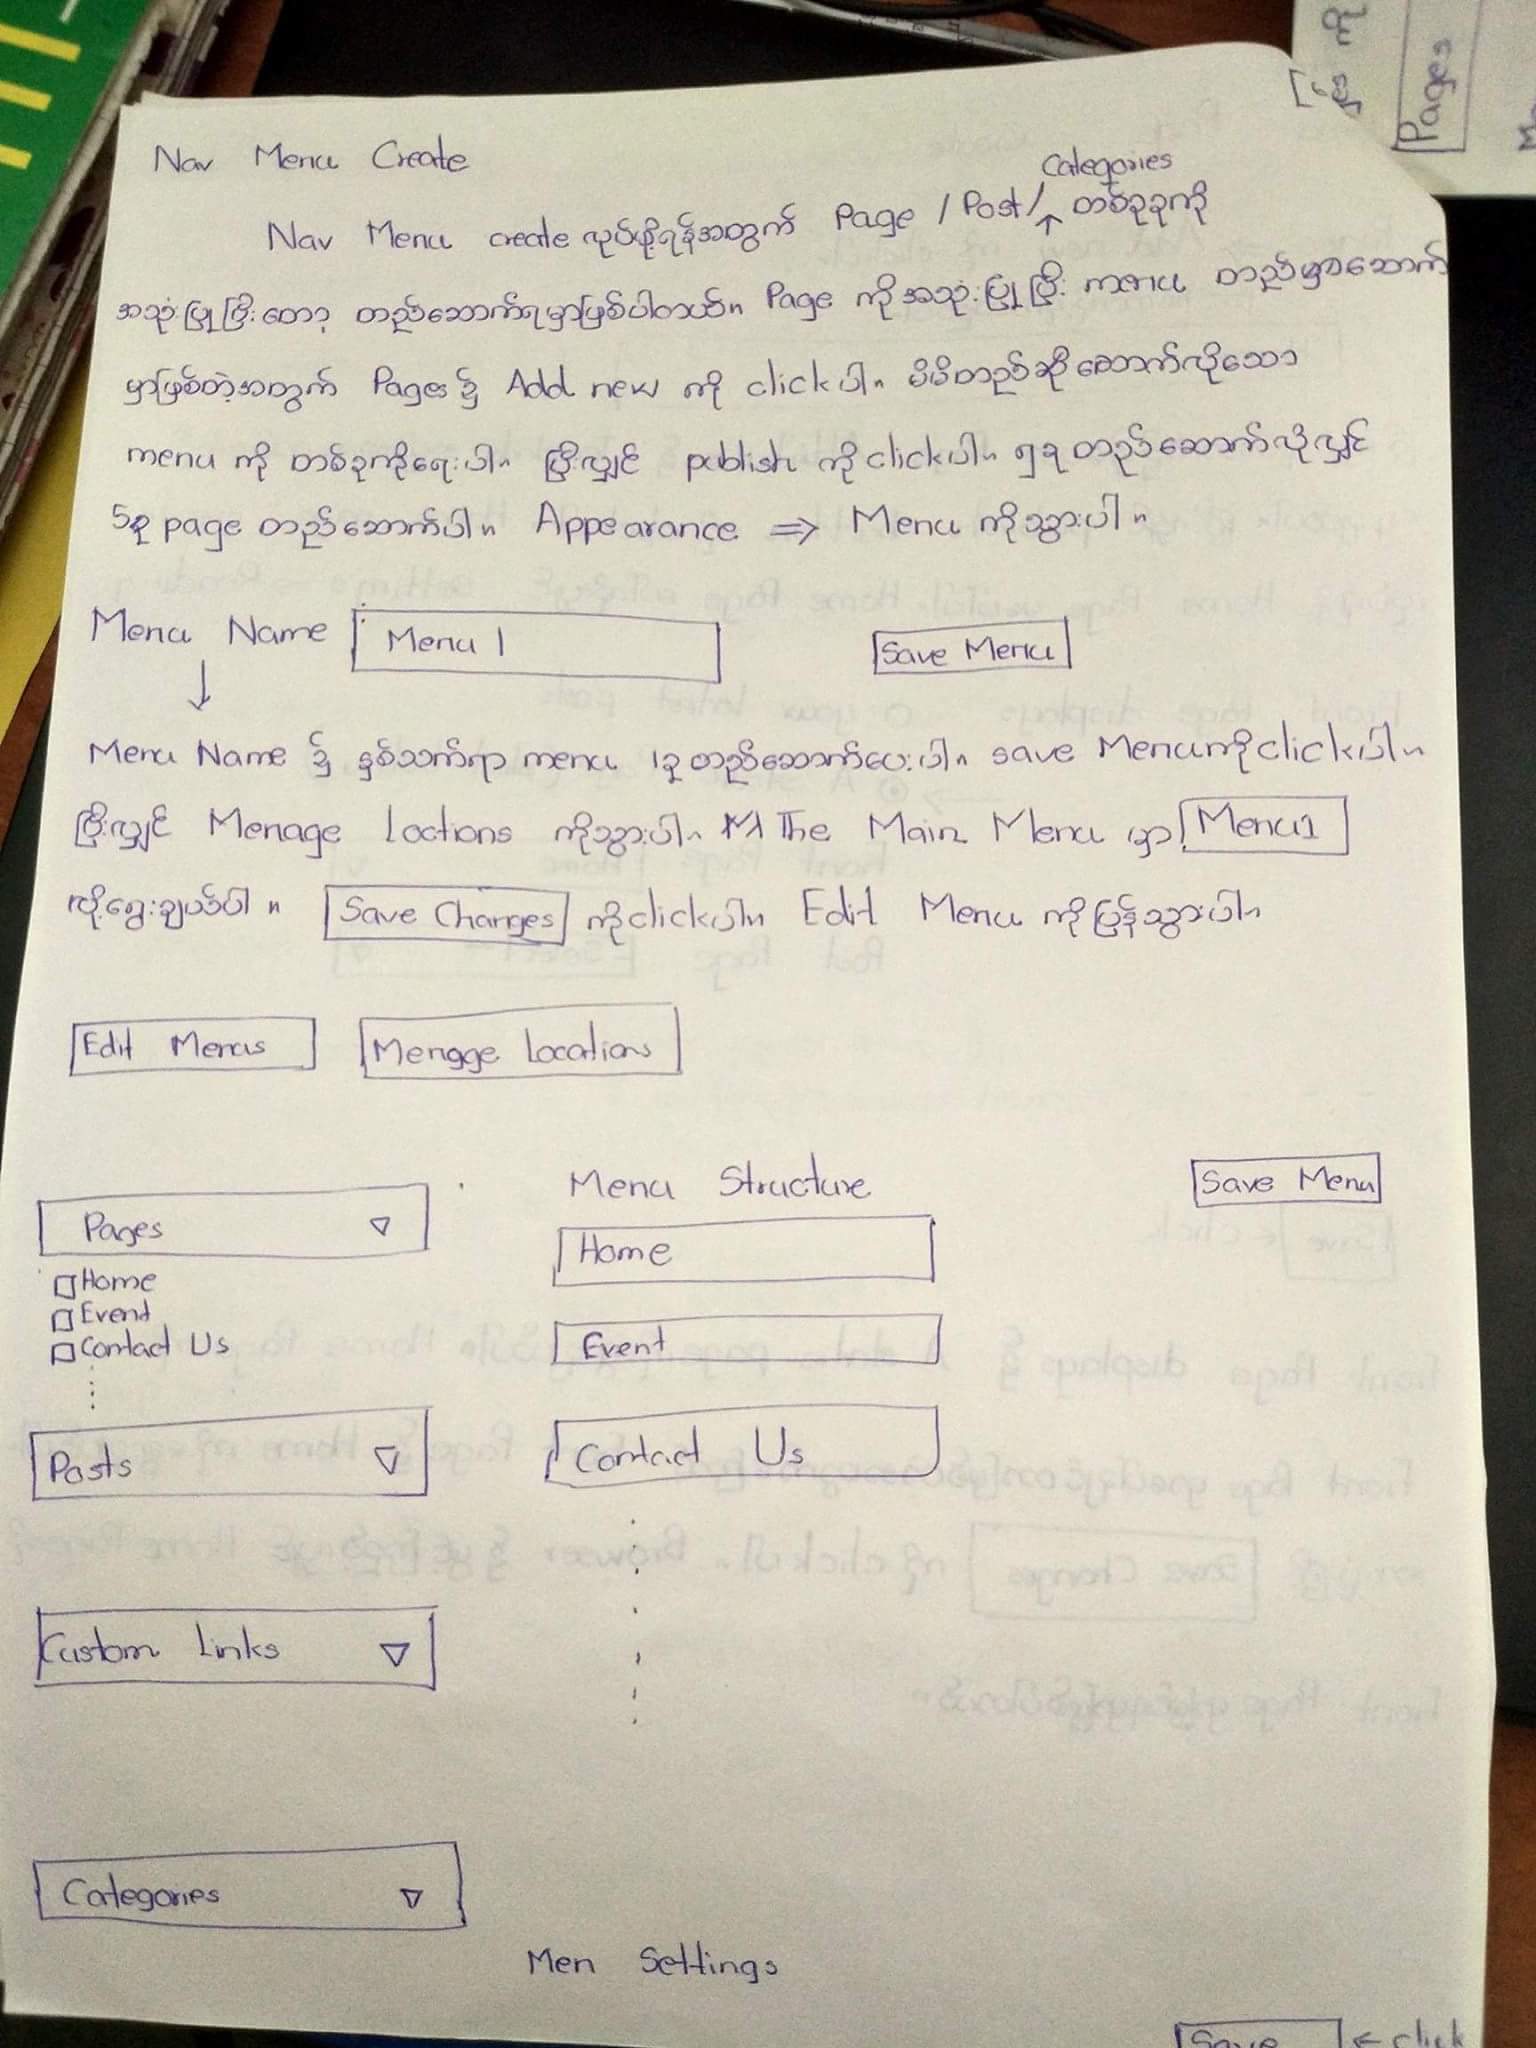 Nav Menu Create
Categories
Nav Menu create လုပ်ဖို့ရန်အတွက် Page / Post / တစ်ခုခုကို
အသုံးပြုပြီးတော့ တည်ဆောက်ရမှာဖြစ်ပါတယ်။ Page ကိုအသုံးပြုပြီး menu တည်ဆောက်
မှာဖြစ်တဲ့အတွက် Pages ၌ Add new ကို click ပါ။ မိမိတည်ဆောက်လိုသော
menu ကို တစ်ခုကိုရေးပါ။ ပြီးလျှင် publish ကို click ပါ။ ၅ခု တည်ဆောက်လိုလျှင်
5ခု page တည်ဆောက်ပါ။ Appearance ⇒ Menu ကိုသွားပါ။
Menu Name Menu 1 Save Menu
Menu Name ၌ နှစ်သက်ရာ menu ၁ခုတည်ဆောက်ပေးပါ။ save Menuကို clickပါ။
ပြီးလျှင် Menage Loctions ကိုသွားပါ။ The Main Menu မှာ Menu1
လို့ရွေးချယ်ပါ။ Save Changes ကို clickပါ။ Edit Menu ကိုပြန်သွားပါ။
Edit Menus Mengge Locations
Menu Structure Save Menu
Pages ▽ Home
Home
Event Event
Contact Us
Posts ▽ Contact Us
Custom Links ▽
Categories ▽
Men Settings
Save ← click
Pages